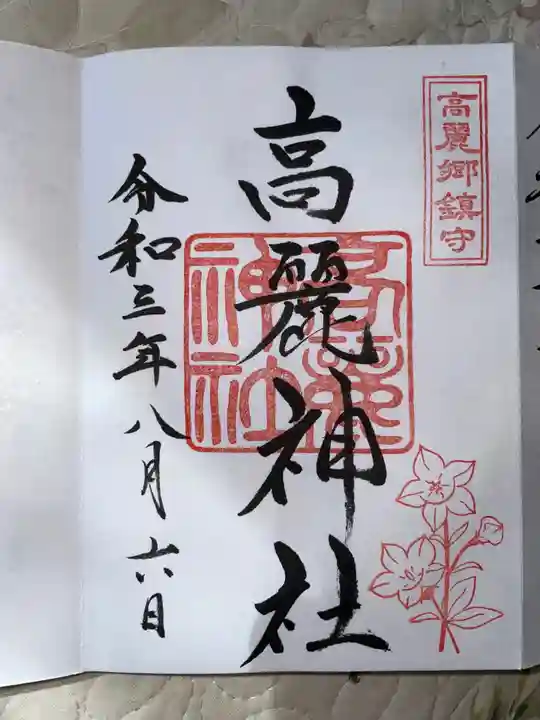 高麗郷鎮守
高麗神社
令和三年八月六日